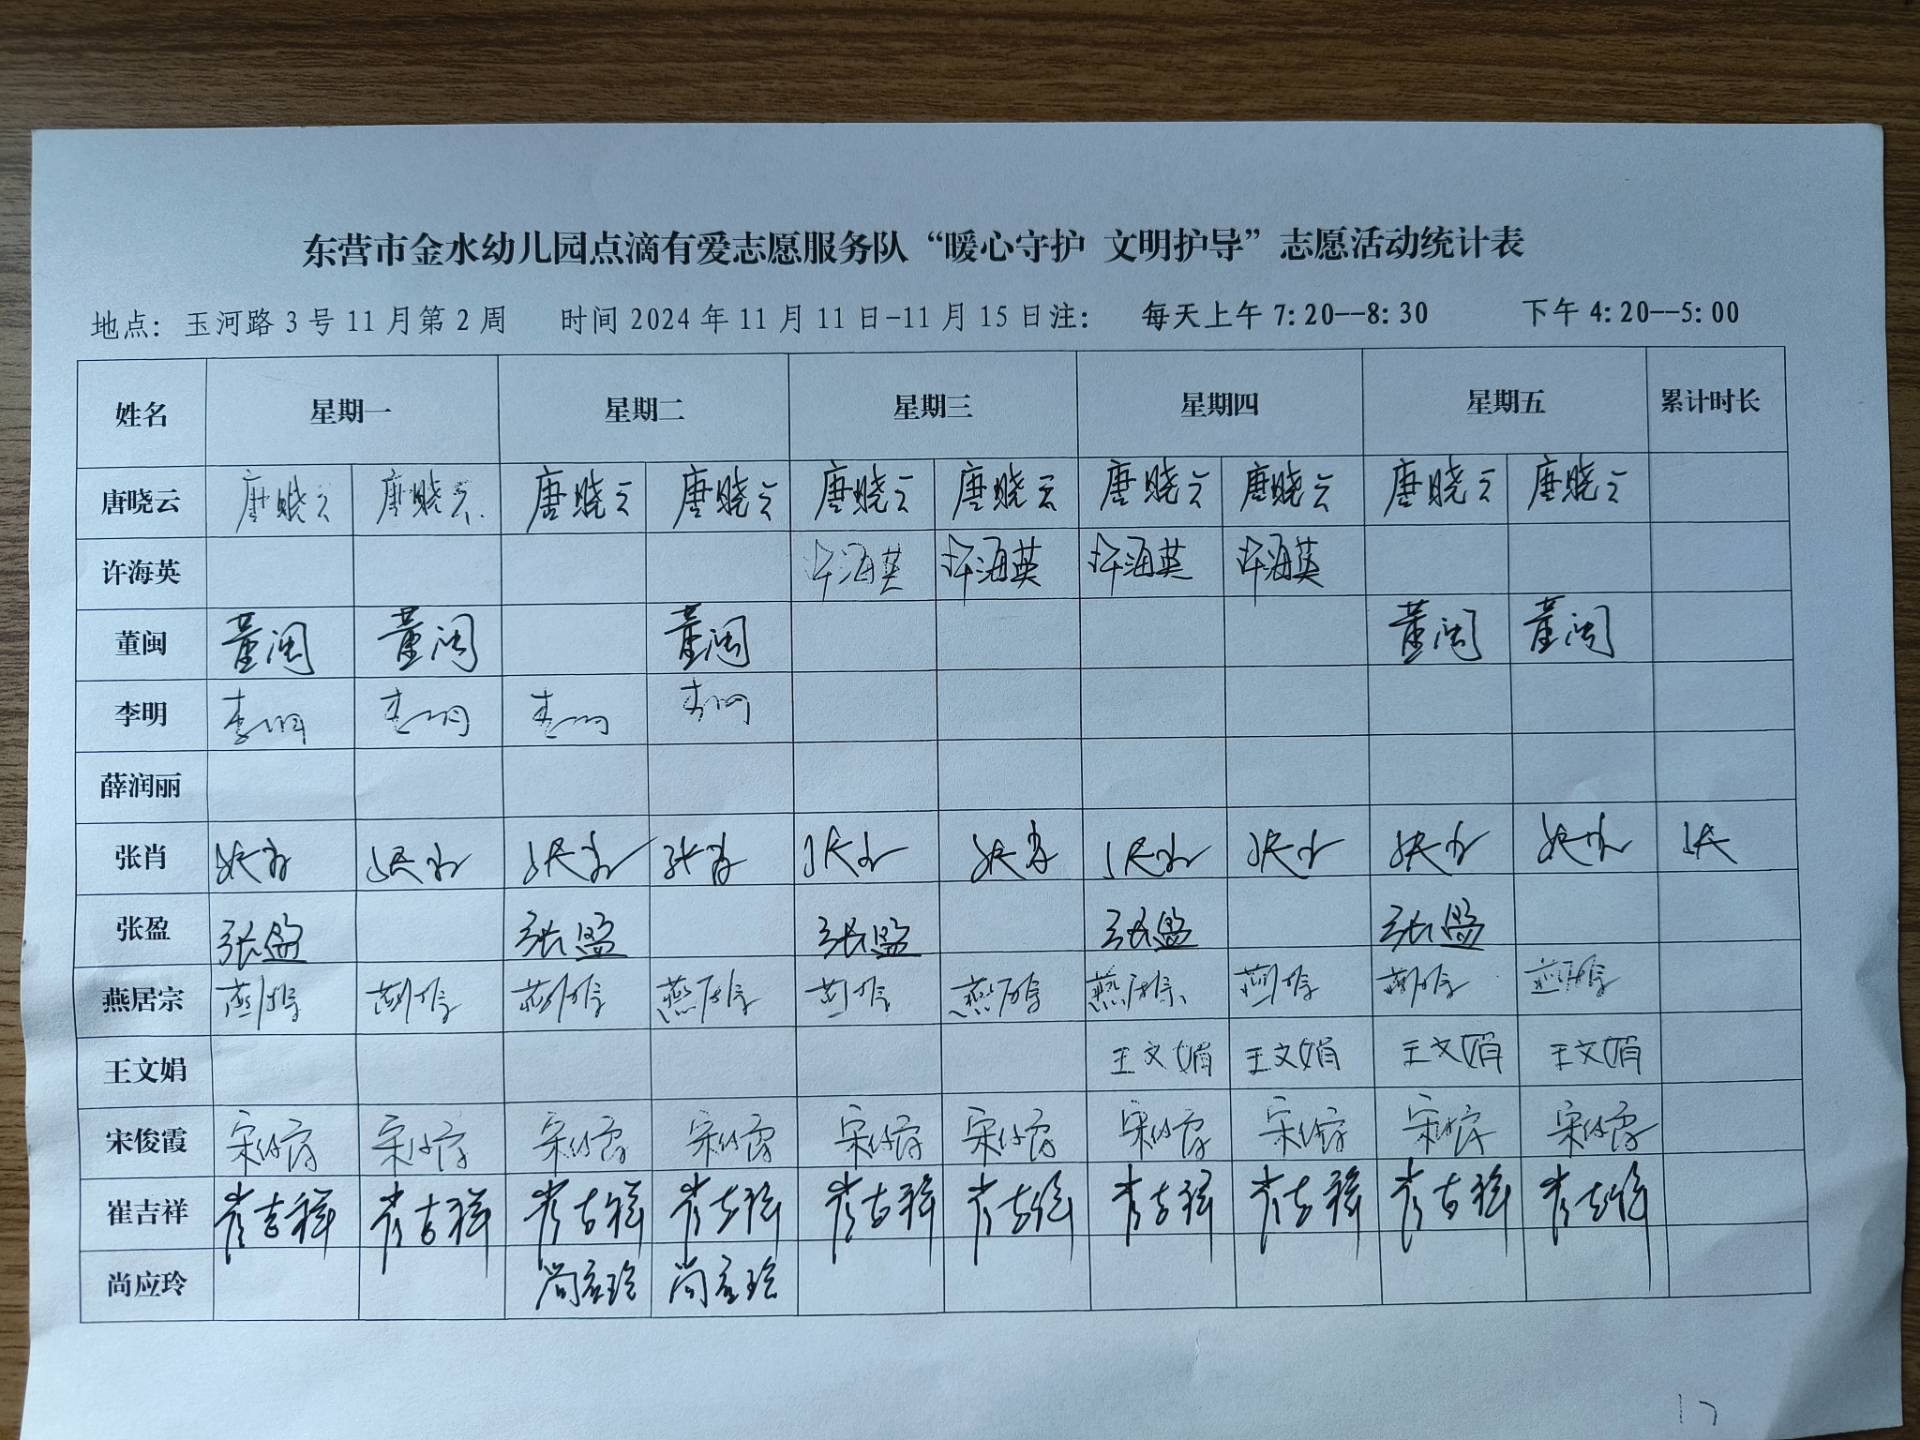 东营市金水幼儿园点滴有爱志愿服务队“暖心守护 文明护导”志愿活动统计表
地点: 玉河路3号11月第2周 时间2024年11月11日-11月15日注: 每天上午7:20--8:30 下午4:20--5:00
姓名 星期一 星期二 星期三 星期四 星期五 累计时长
唐晓云 唐晓云 唐晓云 唐晓云 唐晓云 唐晓云 唐晓云 唐晓云 唐晓云 唐晓云 唐晓云
许海英 许海英 许海英 许海英 许海英
董闽 董闽 董闽 董闽 董闽 董闽
李明 李明 李明 李明 李明
薛润丽
张肖 张肖 张肖 张肖 张肖 张肖 张肖 张肖 张肖 张肖 张肖 张
张盈 张盈 张盈 张盈 张盈 张盈
燕居宗 燕居宗 燕居宗 燕居宗 燕居宗 燕居宗 燕居宗 燕居宗 燕居宗 燕居宗 燕居宗
王文娟 王文娟 王文娟 王文娟 王文娟
宋俊霞 宋俊霞 宋俊霞 宋俊霞 宋俊霞 宋俊霞 宋俊霞 宋俊霞 宋俊霞 宋俊霞 宋俊霞
崔吉祥 崔吉祥 崔吉祥 崔吉祥 崔吉祥 崔吉祥 崔吉祥 崔吉祥 崔吉祥 崔吉祥 崔吉祥
尚应玲 尚应玲 尚应玲
17